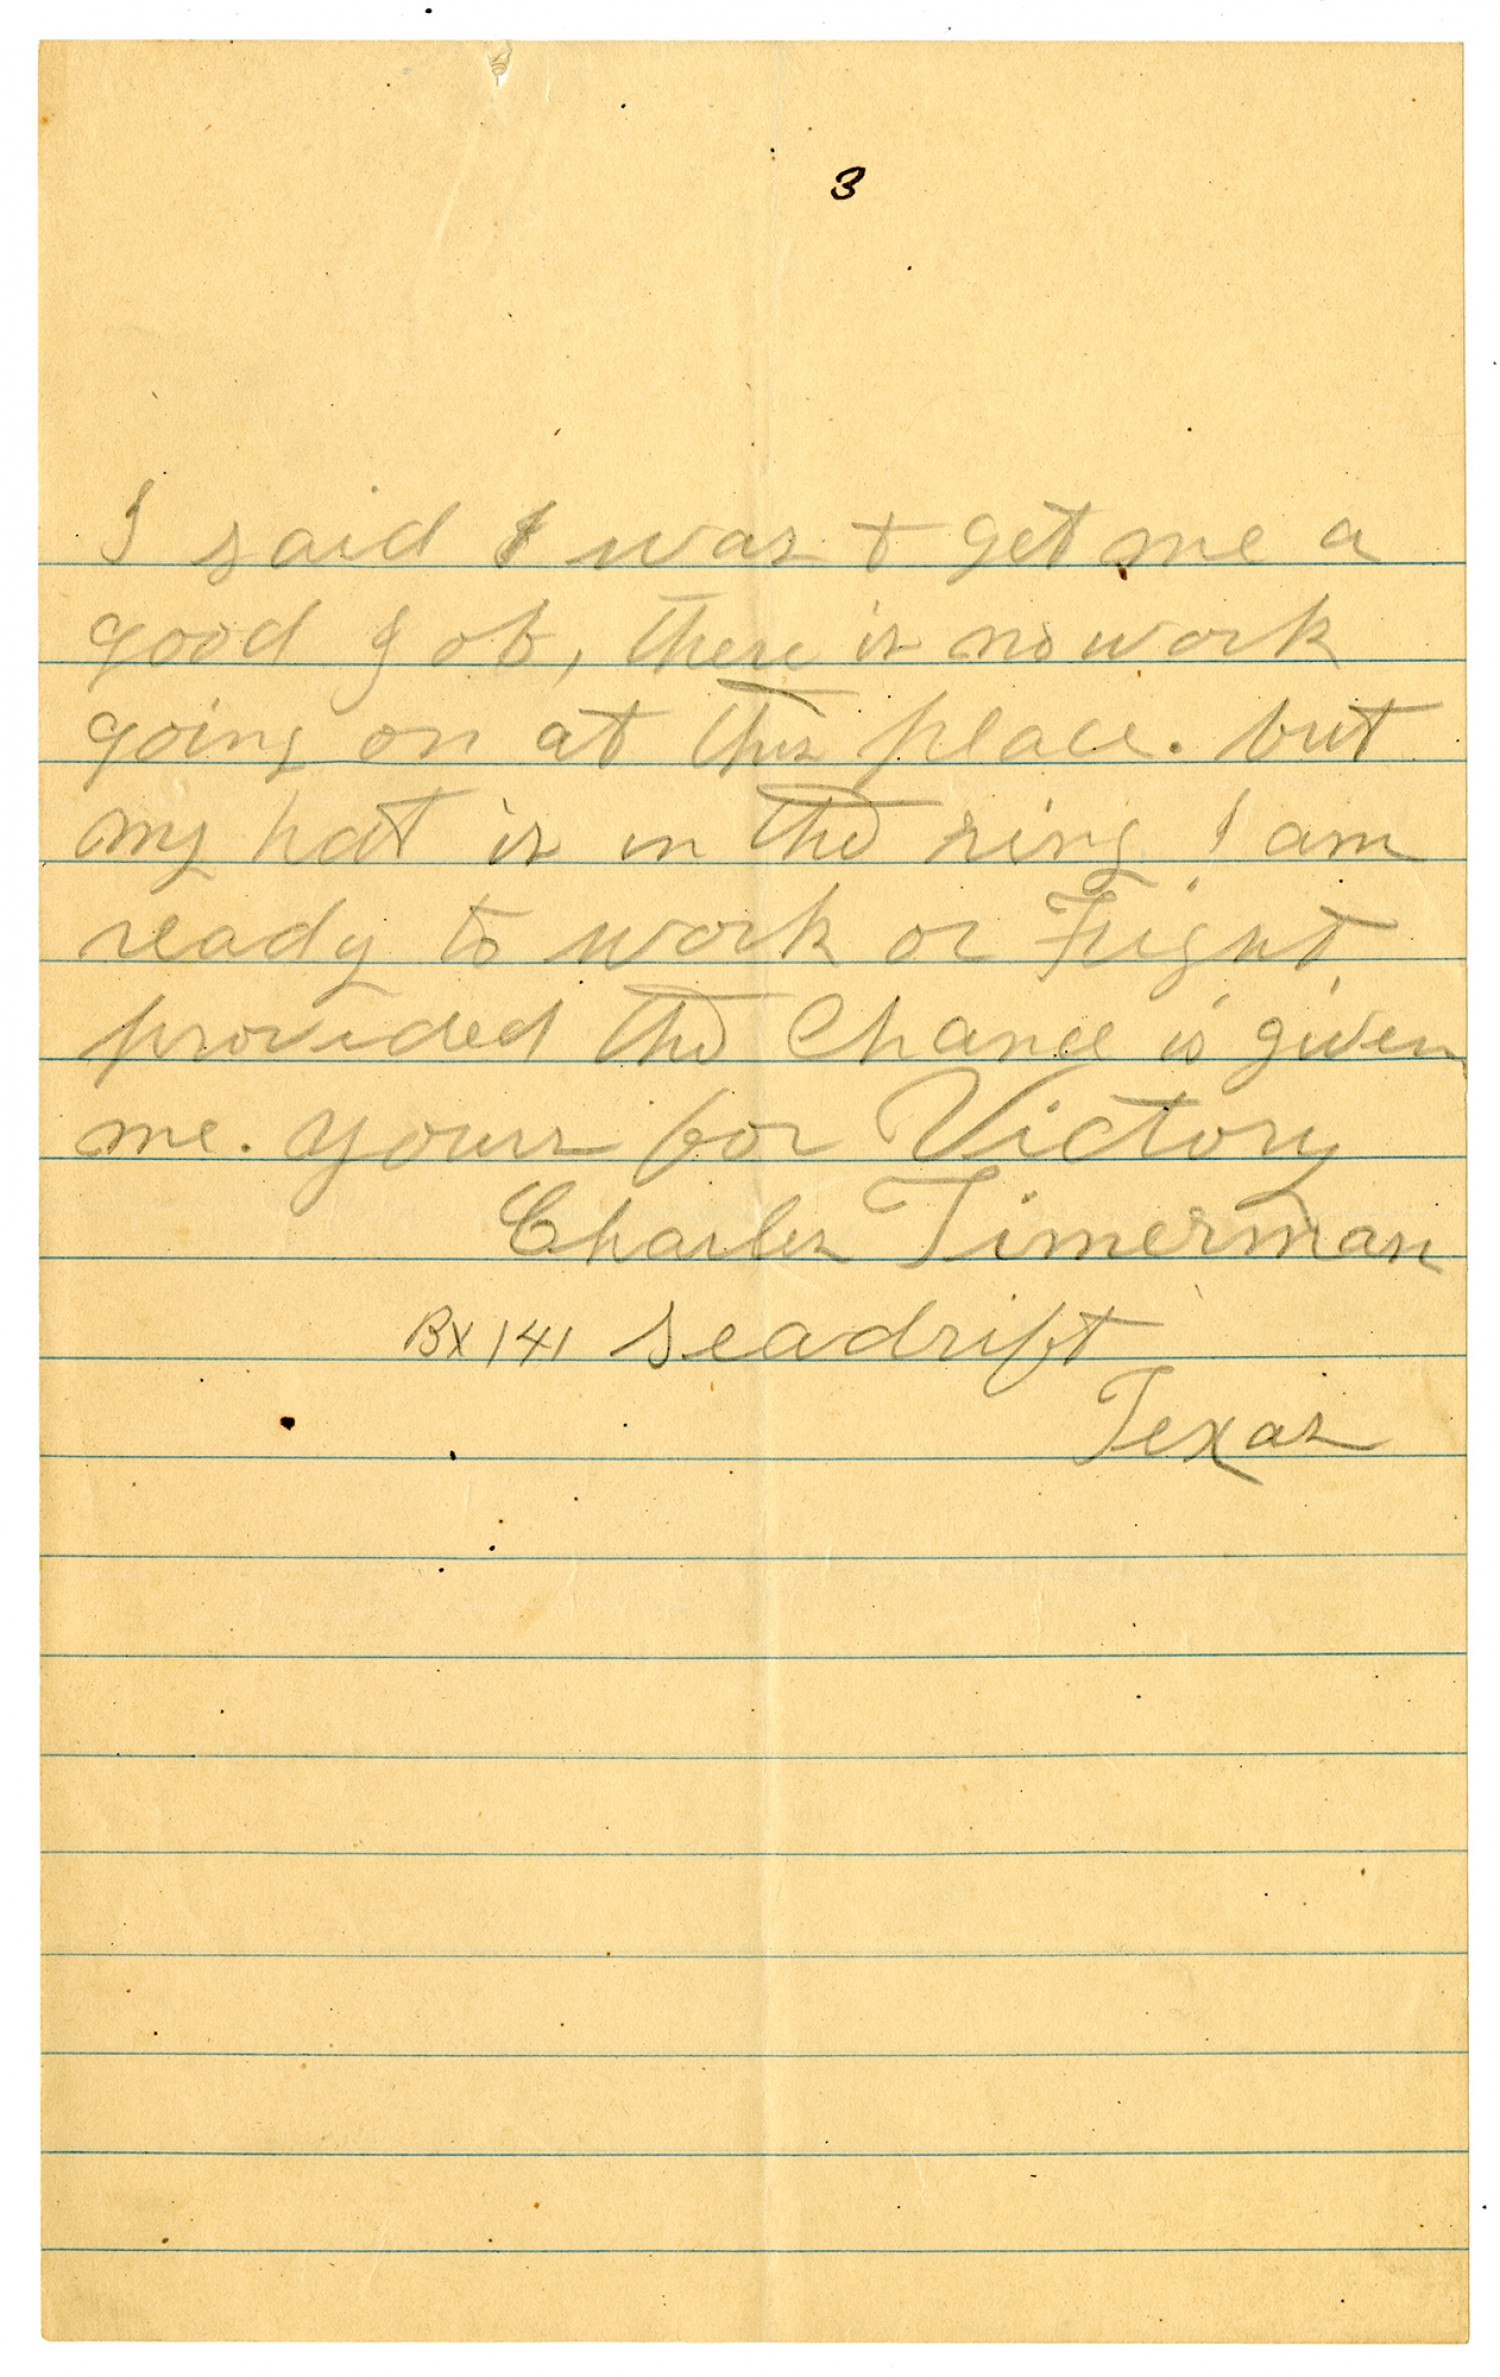 3
I said I was t get me a
good Job, there is no work
going on at this place. but
my hat is in the ring. I am
ready to work or Fight
provided the Chance is given
me. yours for Victory
Charles Timerman
Bx 141 Seadrift
Texas